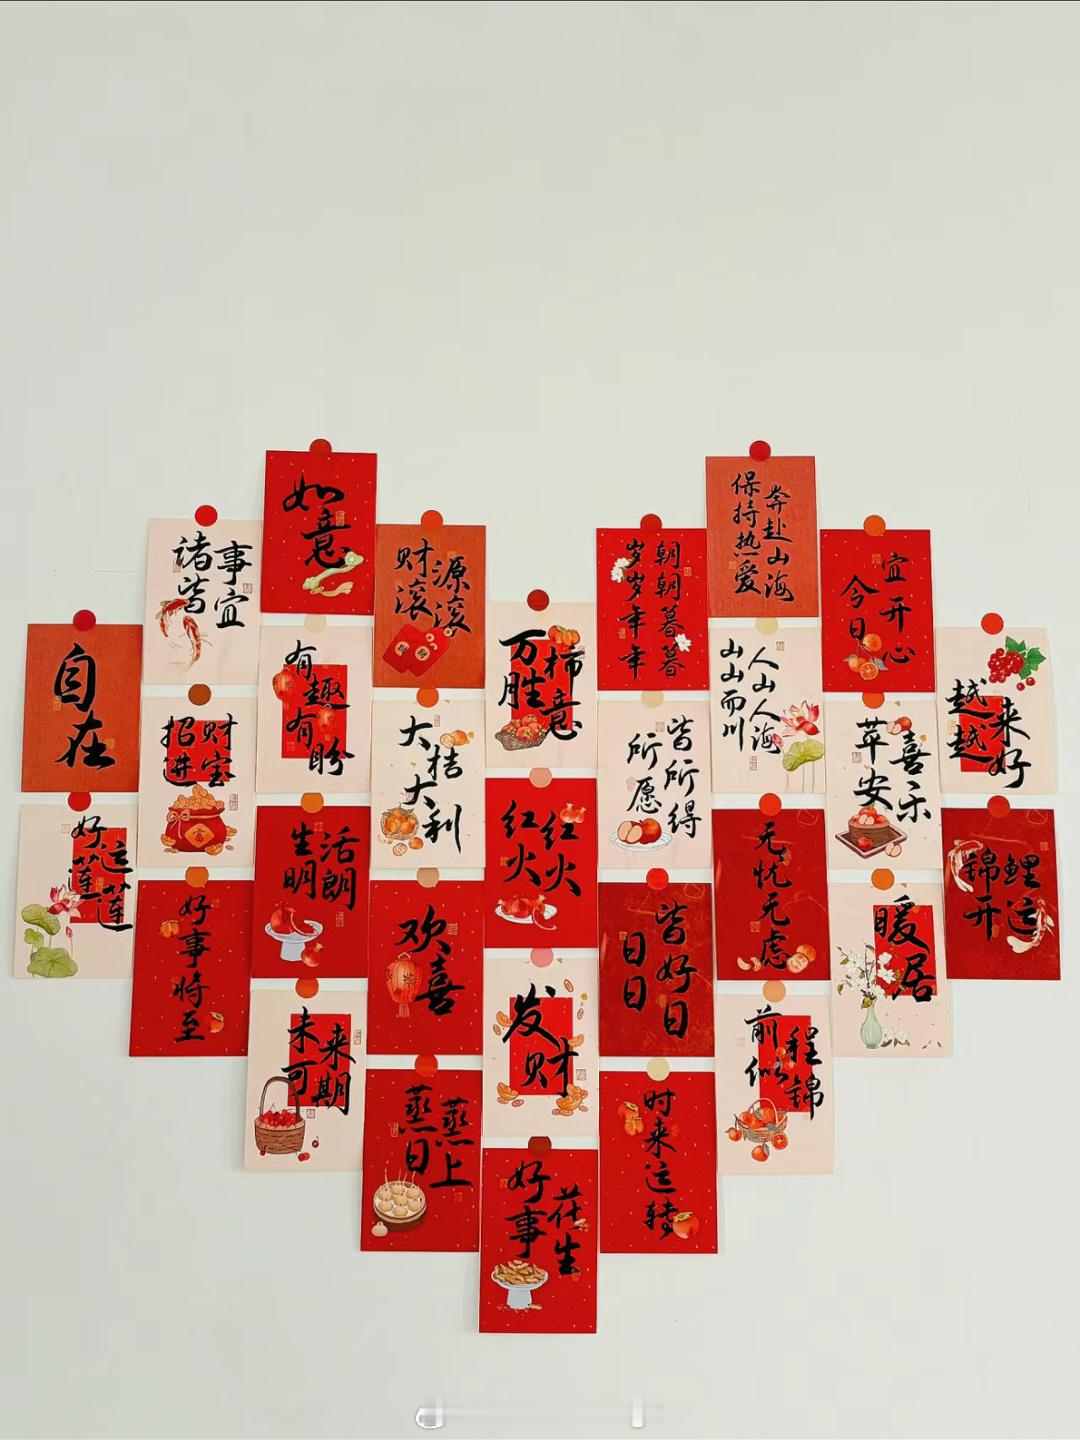 自在
好运莲莲
诸事皆宜
招财进宝
好事将至
如意
有趣有盼
生活明朗
未来可期
财源滚滚
大桔大利
欢喜
蒸蒸日上
万柿胜意
红红火火
发财
好事花生
朝朝暮暮
岁岁年年
所愿
皆所得
日日
皆好日
时来运转
奔赴山海
保持热爱
人山人海
山山而川
无忧无虑
前程似锦
今日
宜开心
苹安喜乐
暖居
越来越好
锦鲤开运